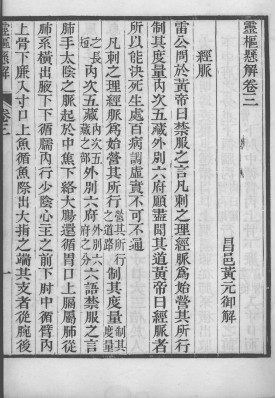 靈樞懸解卷三
昌邑黃元御解
經脈
雷公問於黃帝曰禁服之言凡刺之理經脈為始營其所行
制其度量內次五藏外別六府願盡聞其道黃帝曰經脈者
所以能決死生處百病調虛實不可不通
凡刺之理經脈為始營其所行營其所行之道路制其度量制其度量
之長短內次五藏內次五藏之部外別六府外別六府之方六語禁服之言
肺手太陰之脈起於中焦下絡大腸還循胃口上膈屬肺從
肺系橫出腋下下循臑內行少陰心主之前下肘中循臂內
上骨下廉入寸口上魚循魚際出大指之端其支者從腕後
靈樞懸解
卷三
一